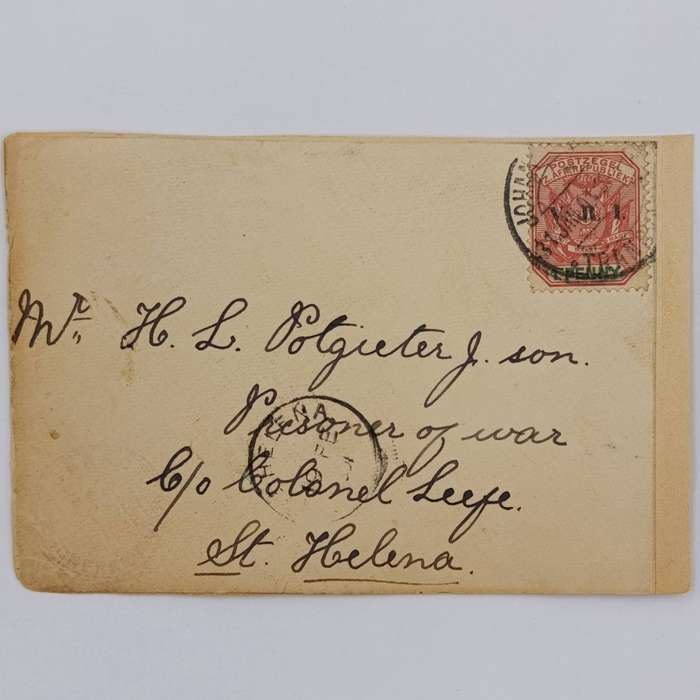 POSTZEGEL
Z. AFR. REPUBLIEK
R. I.
PENNY
Mr. H. L. Potgieter J. son.
Prisoner of war
C/o Colonel Leefe.
St. Helena.
HELENA